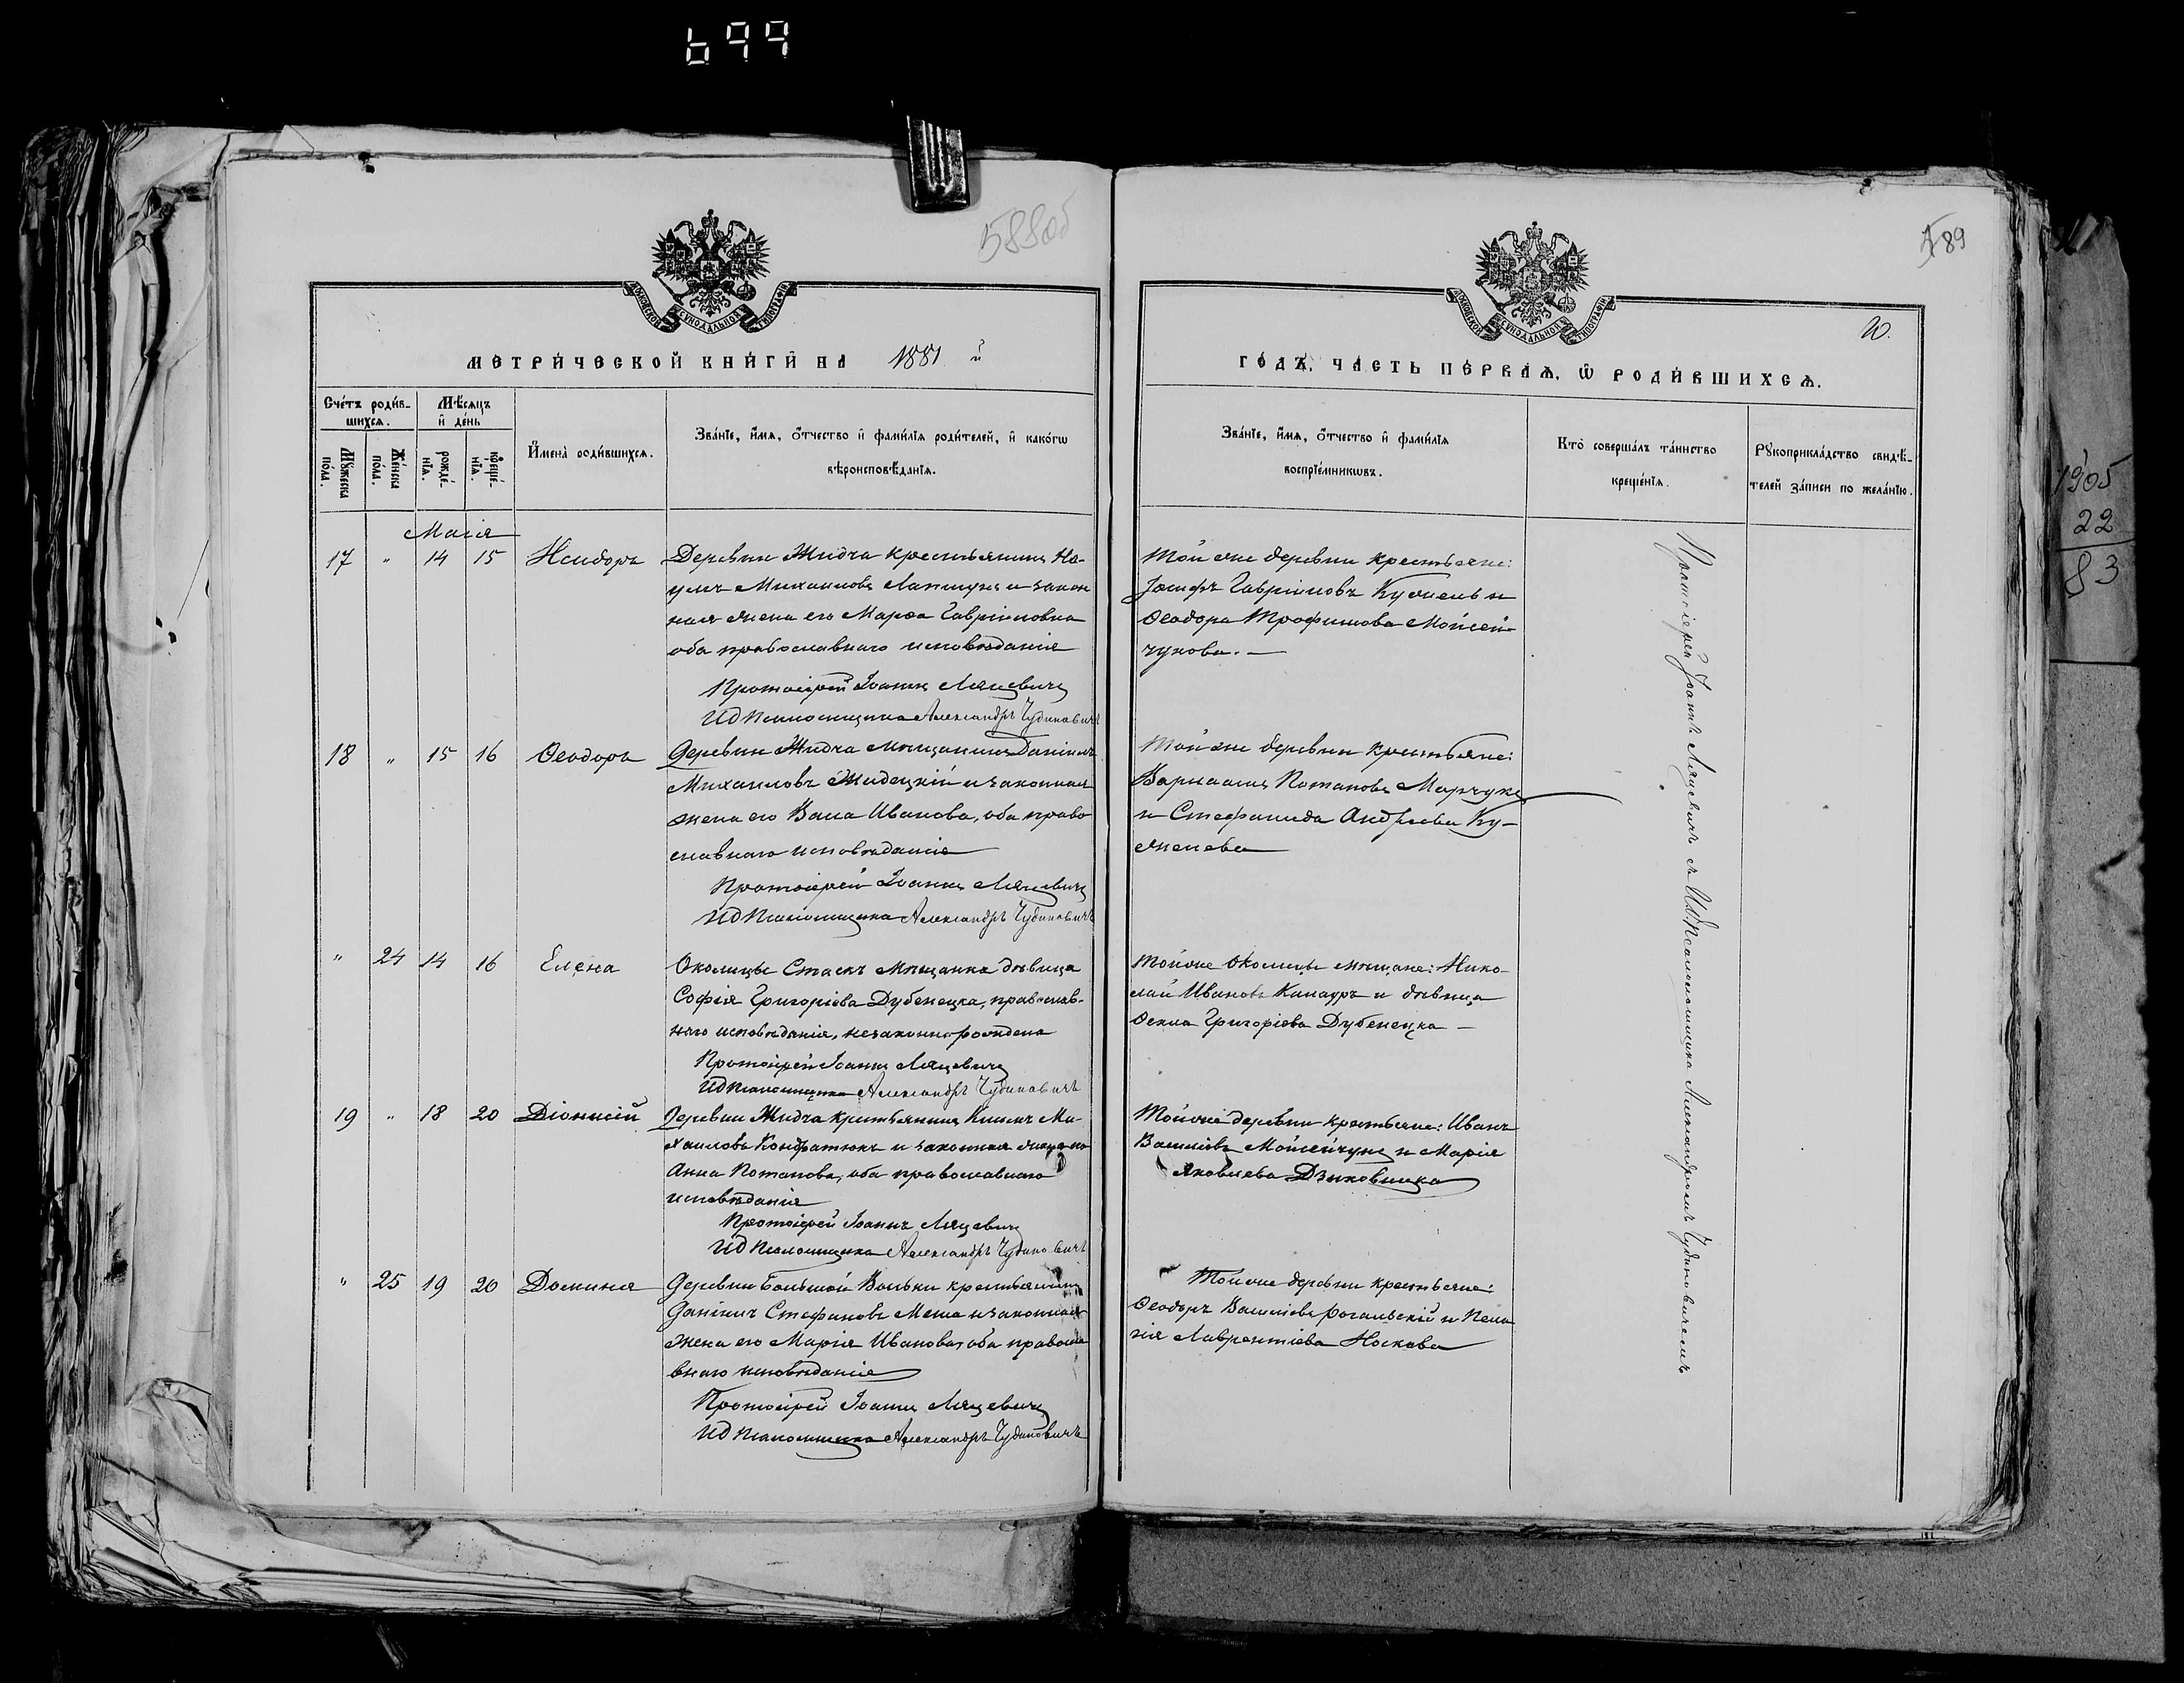 699
588об
589
МОСКОВСКОЙ СѴНОДАЛЬНОЙ ТИПОГРАФІИ
МОСКОВСКОЙ СѴНОДАЛЬНОЙ ТИПОГРАФІИ
20.
МЕТРИ́ЧЕСКОЙ КНИ́ГИ НА 1881 й
ГО́ДЪ, ЧА́СТЬ ПЕ́РВАѦ, Ѽ РОДИ́ВШИХСѦ.
Сче́тъ роди́в-
шихсѧ.
Мѣ́сѧцъ
и де́нь
Мꙋ́жеска
по́ла.
Же́нска
по́ла.
рожде́-
нїѧ.
креще́-
нїѧ.
Имена̀ роди́вшихсѧ.
Зва́нїе, и́мѧ, о́тчество и фами́лїѧ роди́телей, и како́гѡ
вѣроисповѣ́данїѧ.
Зва́нїе, и́мѧ, о́тчество и фами́лїѧ
воспрїе́мникѡвъ.
Кто̀ соверша́лъ та́инство
креще́нїѧ.
Рꙋкоприкла́дство свидѣ́-
телей за́писи по жела́нїю.
Маія
17 " 14 15 Исидоръ
Деревни Жидча крестьянинъ На-
умъ Михаиловъ Лапшукъ и закон
ная жена его Марѳа Гавріиловна
оба православнаго исповѣданія
Протоіерей Іоаннъ Ляцевичъ
ИД Псаломщика Александръ Чудиновичъ
Той же деревни крестьяне:
Іосифъ Гавріиловъ Кужель и
Ѳеодора Трофимова Мойсей-
чукова. —
18 " 15 16 Ѳеодоръ
Деревни Жидча мѣщанинъ Даніилъ
Михаиловъ Жидецкій и законная
жена его Васса Иванова, оба право
славнаго исповѣданія
Протоіерей Іоаннъ Ляцевичъ
ИД Псаломщика Александръ Чудиновичъ
Той же деревни крестьяне:
Варлаамъ Потаповъ Марчукъ
и Стефанида Андреева Ку-
желева
" 24 14 16 Елена
Околицы Стаскъ мѣщанка дѣвица
Софія Григоріева Дубенецка, православ-
наго исповѣданія, незаконно рождена
Протоіерей Іоаннъ Ляцевичъ
ИД Псаломщика Александръ Чудиновичъ
Той же околицы мѣщане: Нико-
лай Ивановъ и дѣвица
Ѳекла Григоріева Дубенецка —
19 " 18 20 Діонисій
Деревни Жидча крестьянинъ Климъ Ми-
хаиловъ Кондратюкъ и законная жена его
Анна Потапова, оба православнаго
исповѣданія
Протоіерей Іоаннъ Ляцевичъ
ИД Псаломщика Александръ Чудиновичъ
Той же деревни крестьяне: Иванъ
Василіевъ Мойсейчукъ и Марія
Яковлева Дзыковицка
" 25 19 20 Домина
Деревни Большой Вольки крестьянинъ
Даніилъ Стефановъ Меша и законная
жена его Марія Иванова, оба правосла
внаго исповѣданія
Протоіерей Іоаннъ Ляцевичъ
ИД Псаломщика Александръ Чудиновичъ
Той же деревни крестьяне:
Ѳеодоръ Василіевъ Рогальскій и Пела
гія Лаврентіева Носкова
Протоіерей Іоаннъ Ляцевичъ съ ИД Псаломщика Александромъ Чудиновичемъ
1905
22
83